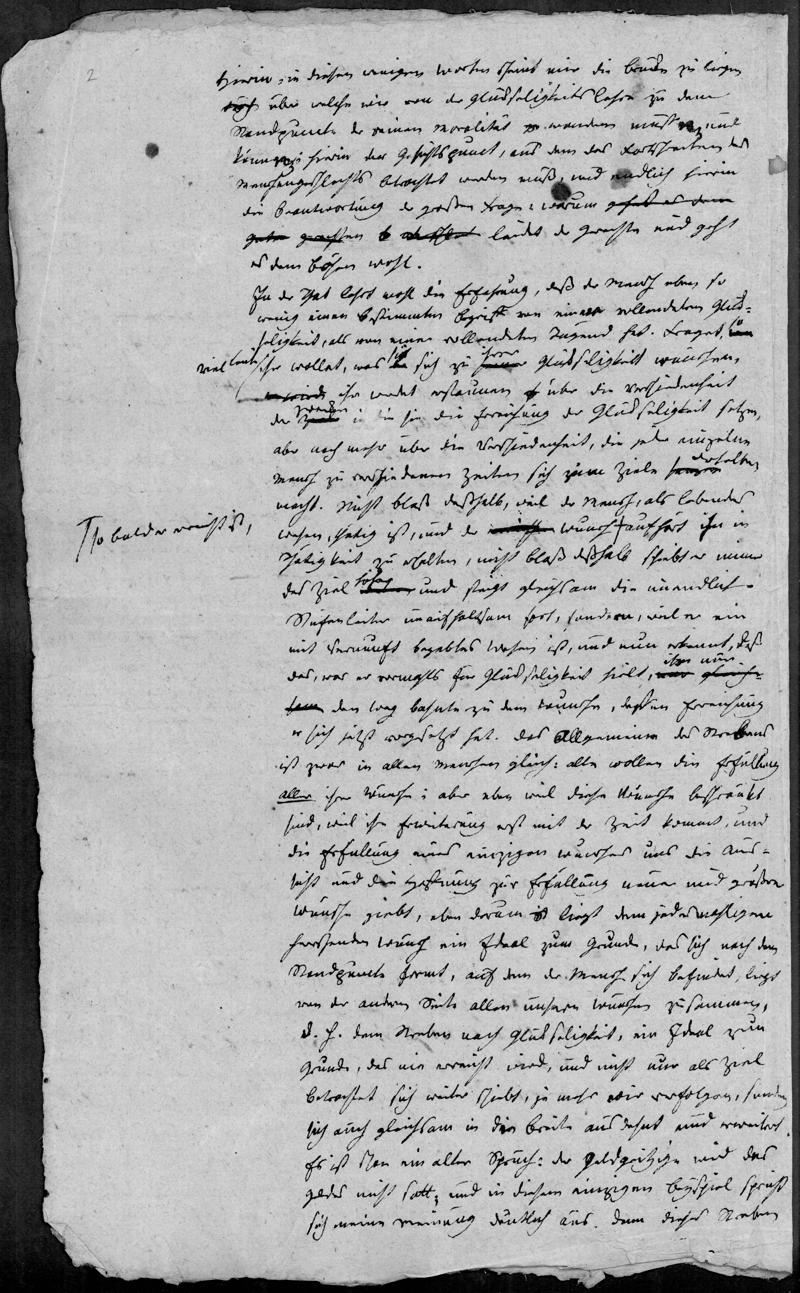 2
Hierin, in diesen wenigen Worten scheint mir die Brücke zu liegen
über welche wir von der Glükseligkeitslehre zu dem
Standpuncte der reinen Moralität wandern müssen, und
hierin der Gesichtspunct, aus dem das Fortschreiten des
Menschengeschlechts betrachtet werden muß, und endlich hierin
die Beantwortung der großen Frage: warum geht es dem
guten leidet der Gerechte und geht
es dem bösen wohl.
In der That lehrt wohl die Erfahrung, daß der Mensch eben so
wenig einen bestimmten Begriff von einer vollendeten Glük-
seligkeit, als von einer vollendeten Tugend hat. Fraget,
viel Leute ihr wollet, was sie sich zu ihrer Glükseligkeit wünschen,
ihr werdet erstaunen über die Verschiedenheit
der Zwecke in die sie die Erreichung der Glükseligkeit setzen,
aber noch mehr über die Verschiedenheit, die jeder einzelne
Mensch zu verschiedenen Zeiten sich zum Ziele derselben
macht. Nicht bloß deßhalb, weil der Mensch, als lebendes
so bald er erreicht ist,
Wesen, thätig ist, und der Wunsch aufhört ihn in
Thätigkeit zu erhalten, nicht bloß deßhalb schiebt er immer
das Ziel höher und steigt gleichsam die unendliche
Stufenleiter unaufhaltsam fort, sondern, weil er ein
mit Vernunft begabtes Wesen ist, und nun erkennt, daß
das, was er vormahls für Glükseligkeit hielt, ihm nur
den Weg bahnte zu dem Wunsche, dessen Erreichung
er sich jetzt vorgesetzt hat. Das Allgemeine des Strebens
ist zwar in allen Menschen gleich: alle wollen die Erfüllung
aller ihrer Wünsche; aber eben weil diese Wünsche beschränkt
sind, weil ihre Erweiterung erst mit der Zeit kommt, und
die Erfüllung eines einzigen Wunsches uns die Aus-
sicht und die Hoffnung zur Erfüllung neuer und größrer
Wünsche giebt, eben darum liegt dem jedesmahligen
herrschenden Wunsch ein Ideal zum Grunde, das sich nach dem
Standpuncte formt, auf dem der Mensch sich befindet, liegt
von der andern Seite allen unsern Wünschen zusammen,
d. h. dem Streben nach Glükseligkeit, ein Ideal zum
Grunde, das nie erreicht wird, und nicht nur als Ziel
betrachtet sich weiter schiebt, je mehr wir verfolgen, sondern
sich auch gleichsam in die Breite ausdehnt und erweitert.
Es ist schon ein alter Spruch: der Geldgeitzige wird des
Geldes nicht satt; und in diesem einzigen Beyspiel spricht
sich meine Meinung deutlich aus. denn dieses Streben